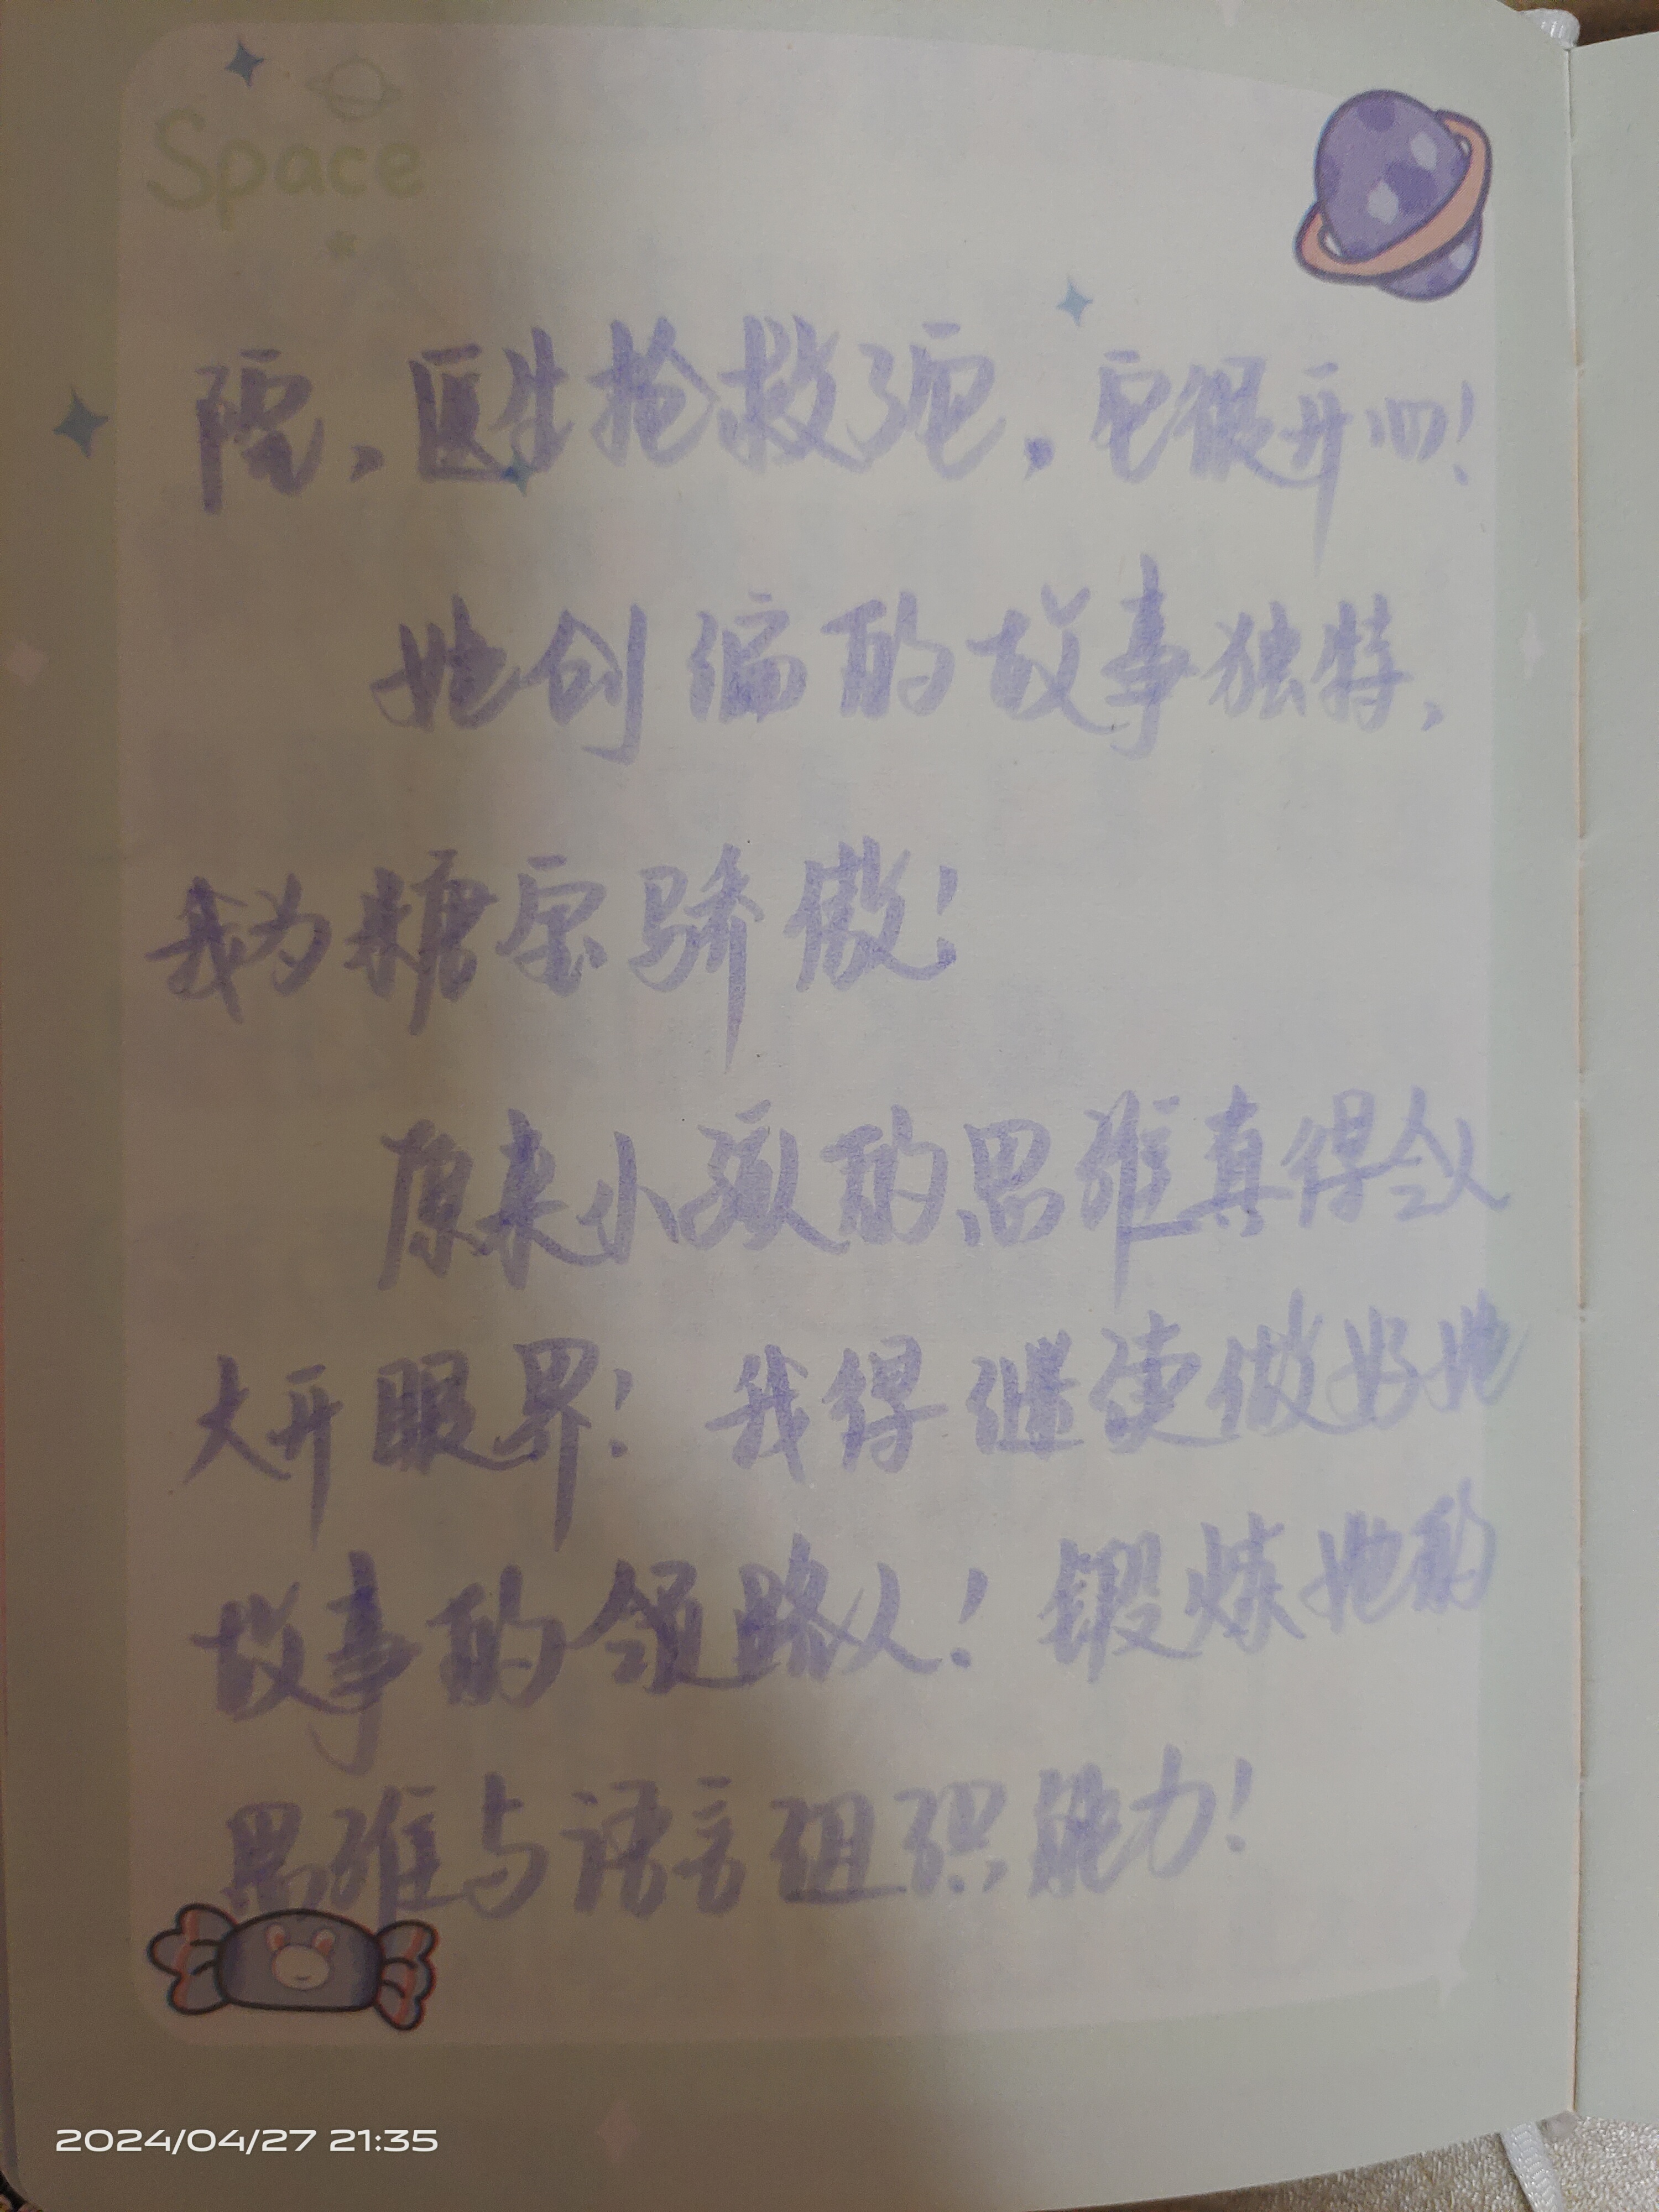 Space
院,医生抢救了它,它很开心!
她创编的故事独特,
我为糖宝骄傲!
原来小孩的思维真得令人
大开眼界!我得继续做好她
故事的领路人!锻炼她的
思维与语言组织能力!
2024/04/27 21:35